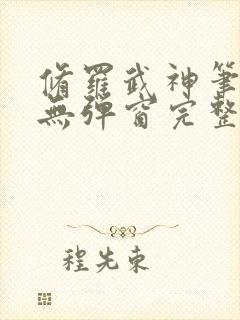 脩羅武神筆
無彈窗完整
程先東